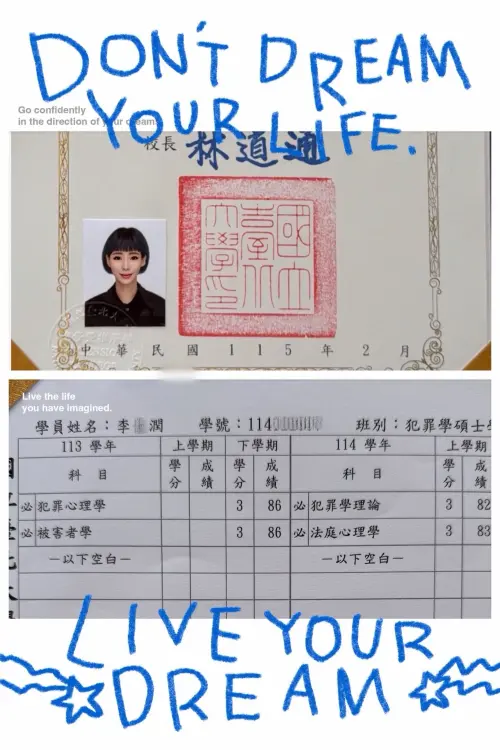 DON'T DREAM
YOUR LIFE.
Go confidently
in the direction of your dreams
校長 林道通
國立臺北大學印
中華民國115年2月
Live the life
you have imagined.
學員姓名：李 潤 學號：114 班別：犯罪學碩士學
113 學年 上學期 下學期 114 學年 上學期
科目 學分 成績 學分 成績 科目 學分 成績
必 犯罪心理學 3 86 必 犯罪學理論 3 82
必 被害者學 3 86 必 法庭心理學 3 83
－以下空白－ －以下空白－
LIVE YOUR
DREAM